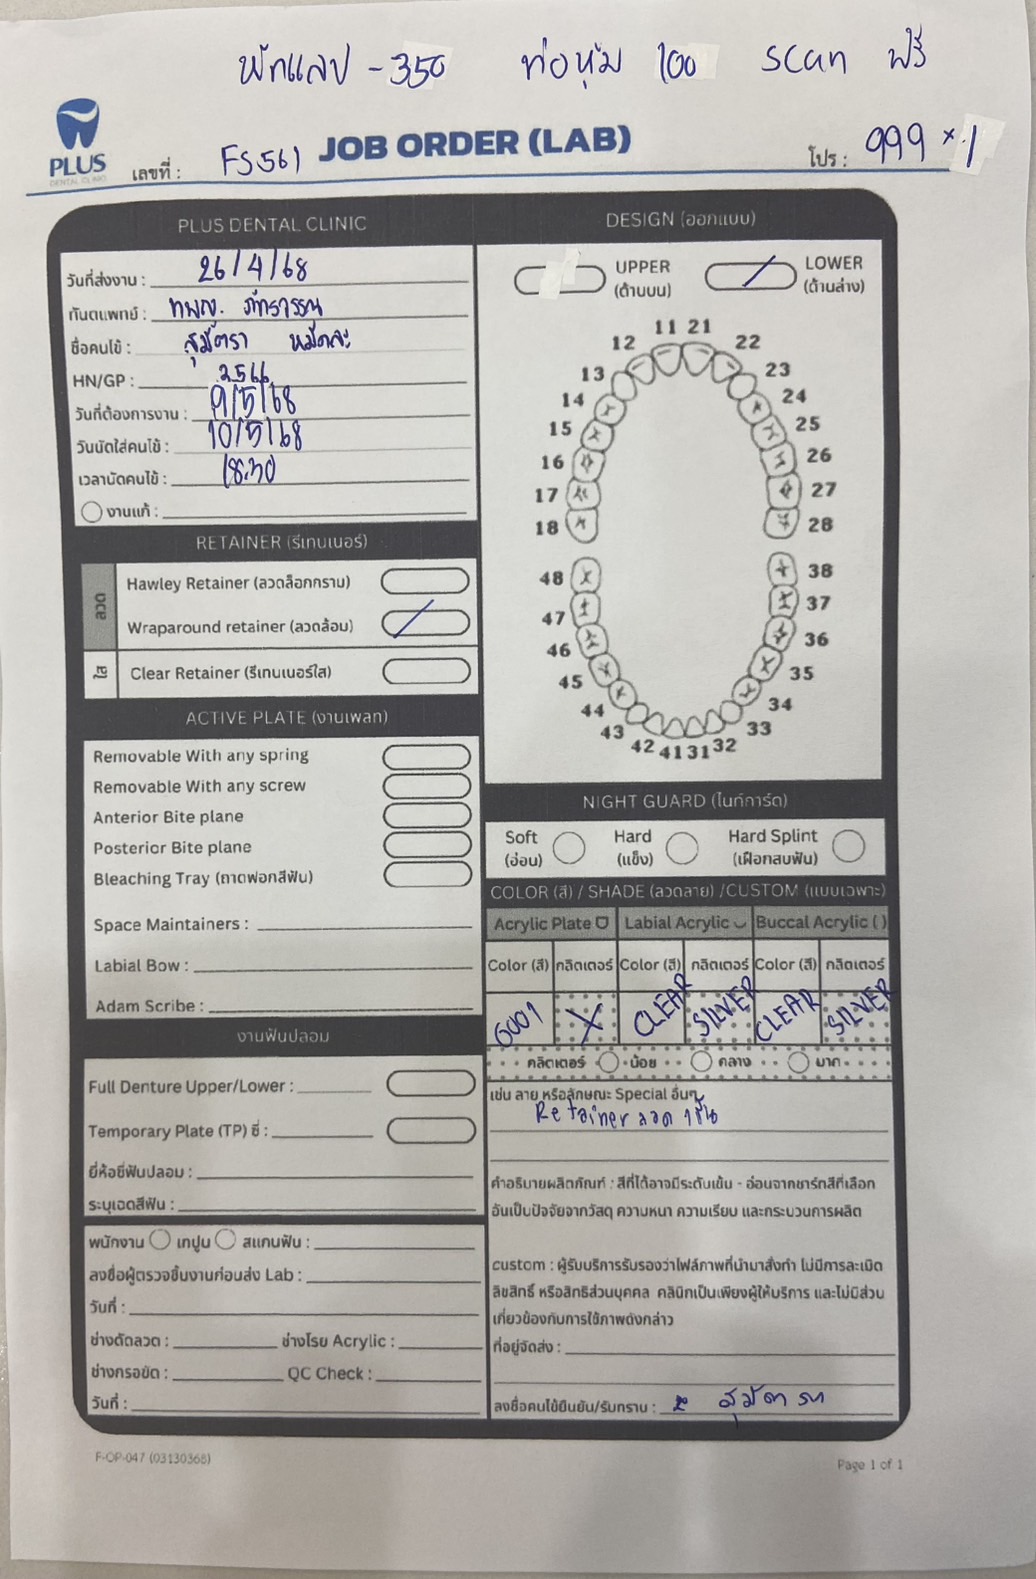 พักแลป -350 ท่อหุ้ม 100 scan ฟรี
PLUS
DENTAL CLINIC
เลขที่ : FS561
JOB ORDER (LAB)
โปร : 999 × 1
PLUS DENTAL CLINIC
วันที่ส่งงาน : 26/4/68
ทันตแพทย์ : ทพญ. ภัทรวรรณ
ชื่อคนไข้ : สุมัตรา หมัดละ
HN/GP : 2566
วันที่ต้องการงาน : 9/5/68
วันนัดใส่คนไข้ : 10/5/68
เวลานัดคนไข้ : 18:30
งานแก้ :
RETAINER (รีเทนเนอร์)
ลวด
Hawley Retainer (ลวดล็อกกราม)
Wraparound retainer (ลวดล้อม)
ใส
Clear Retainer (รีเทนเนอร์ใส)
ACTIVE PLATE (งานเพลท)
Removable With any spring
Removable With any screw
Anterior Bite plane
Posterior Bite plane
Bleaching Tray (ถาดฟอกสีฟัน)
Space Maintainers :
Labial Bow :
Adam Scribe :
งานฟันปลอม
Full Denture Upper/Lower :
Temporary Plate (TP) ซี่ :
ยี่ห้อซี่ฟันปลอม :
ระบุเฉดสีฟัน :
พนักงาน เทปูน สแกนฟัน :
ลงชื่อผู้ตรวจชิ้นงานก่อนส่ง Lab :
วันที่ :
ช่างดัดลวด : ช่างโรย Acrylic :
ช่างกรอขัด : QC Check :
วันที่ :
DESIGN (ออกแบบ)
UPPER
(ด้านบน)
LOWER
(ด้านล่าง)
11 21
12 22
13 23
14 24
15 25
16 26
17 27
18 28
48 38
47 37
46 36
45 35
44 34
43 33
42 41 31 32
NIGHT GUARD (ไนท์การ์ด)
Soft
(อ่อน)
Hard
(แข็ง)
Hard Splint
(เฝือกสบฟัน)
COLOR (สี) / SHADE (ลวดลาย) /CUSTOM (แบบเฉพาะ)
Acrylic Plate Labial Acrylic Buccal Acrylic ( )
Color (สี) กลิตเตอร์ Color (สี) กลิตเตอร์ Color (สี) กลิตเตอร์
6001 X CLEAR SILVER CLEAR SILVER
กลิตเตอร์ น้อย กลาง มาก
เช่น ลาย หรือลักษณะ Special อื่นๆ
Retainer ลวด 1ชิ้น
คำอธิบายผลิตภัณฑ์ : สีที่ได้อาจมีระดับเข้ม - อ่อนจากชาร์ทสีที่เลือก
อันเป็นปัจจัยจากวัสดุ ความหนา ความเรียบ และกระบวนการผลิต
custom : ผู้รับบริการรับรองว่าไฟล์ภาพที่นำมาสั่งทำ ไม่มีการละเมิด
ลิขสิทธิ์ หรือสิทธิส่วนบุคคล คลินิกเป็นเพียงผู้ให้บริการ และไม่มีส่วน
เกี่ยวข้องกับการใช้ภาพดังกล่าว
ที่อยู่จัดส่ง :
ลงชื่อคนไข้ยืนยัน/รับทราบ : สุมัตรา
F-OP-047 (03130368)
Page 1 of 1